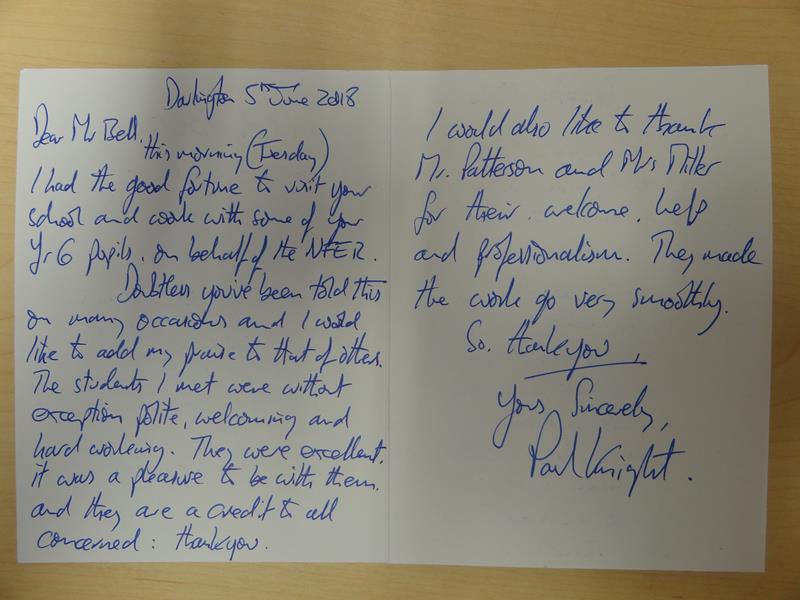 Darlington 5th June 2018
Dear Mr Bell,
this morning (Tuesday)
I had the good fortune to visit your
school and work with some of your
Yr 6 pupils, on behalf of the NFER.
Doubtless you've been told this
on many occasions and I would
like to add my praise to that of others.
The students I met were without
exception polite, welcoming and
hard working. They were excellent,
it was a pleasure to be with them.
and they are a credit to all
concerned: thankyou.
I would also like to thank
Mr. Patterson and Mrs Miller
for their welcome, help
and professionalism. They made
the work go very smoothly.
So, thankyou,
Yours Sincerely,
Paul Knight.